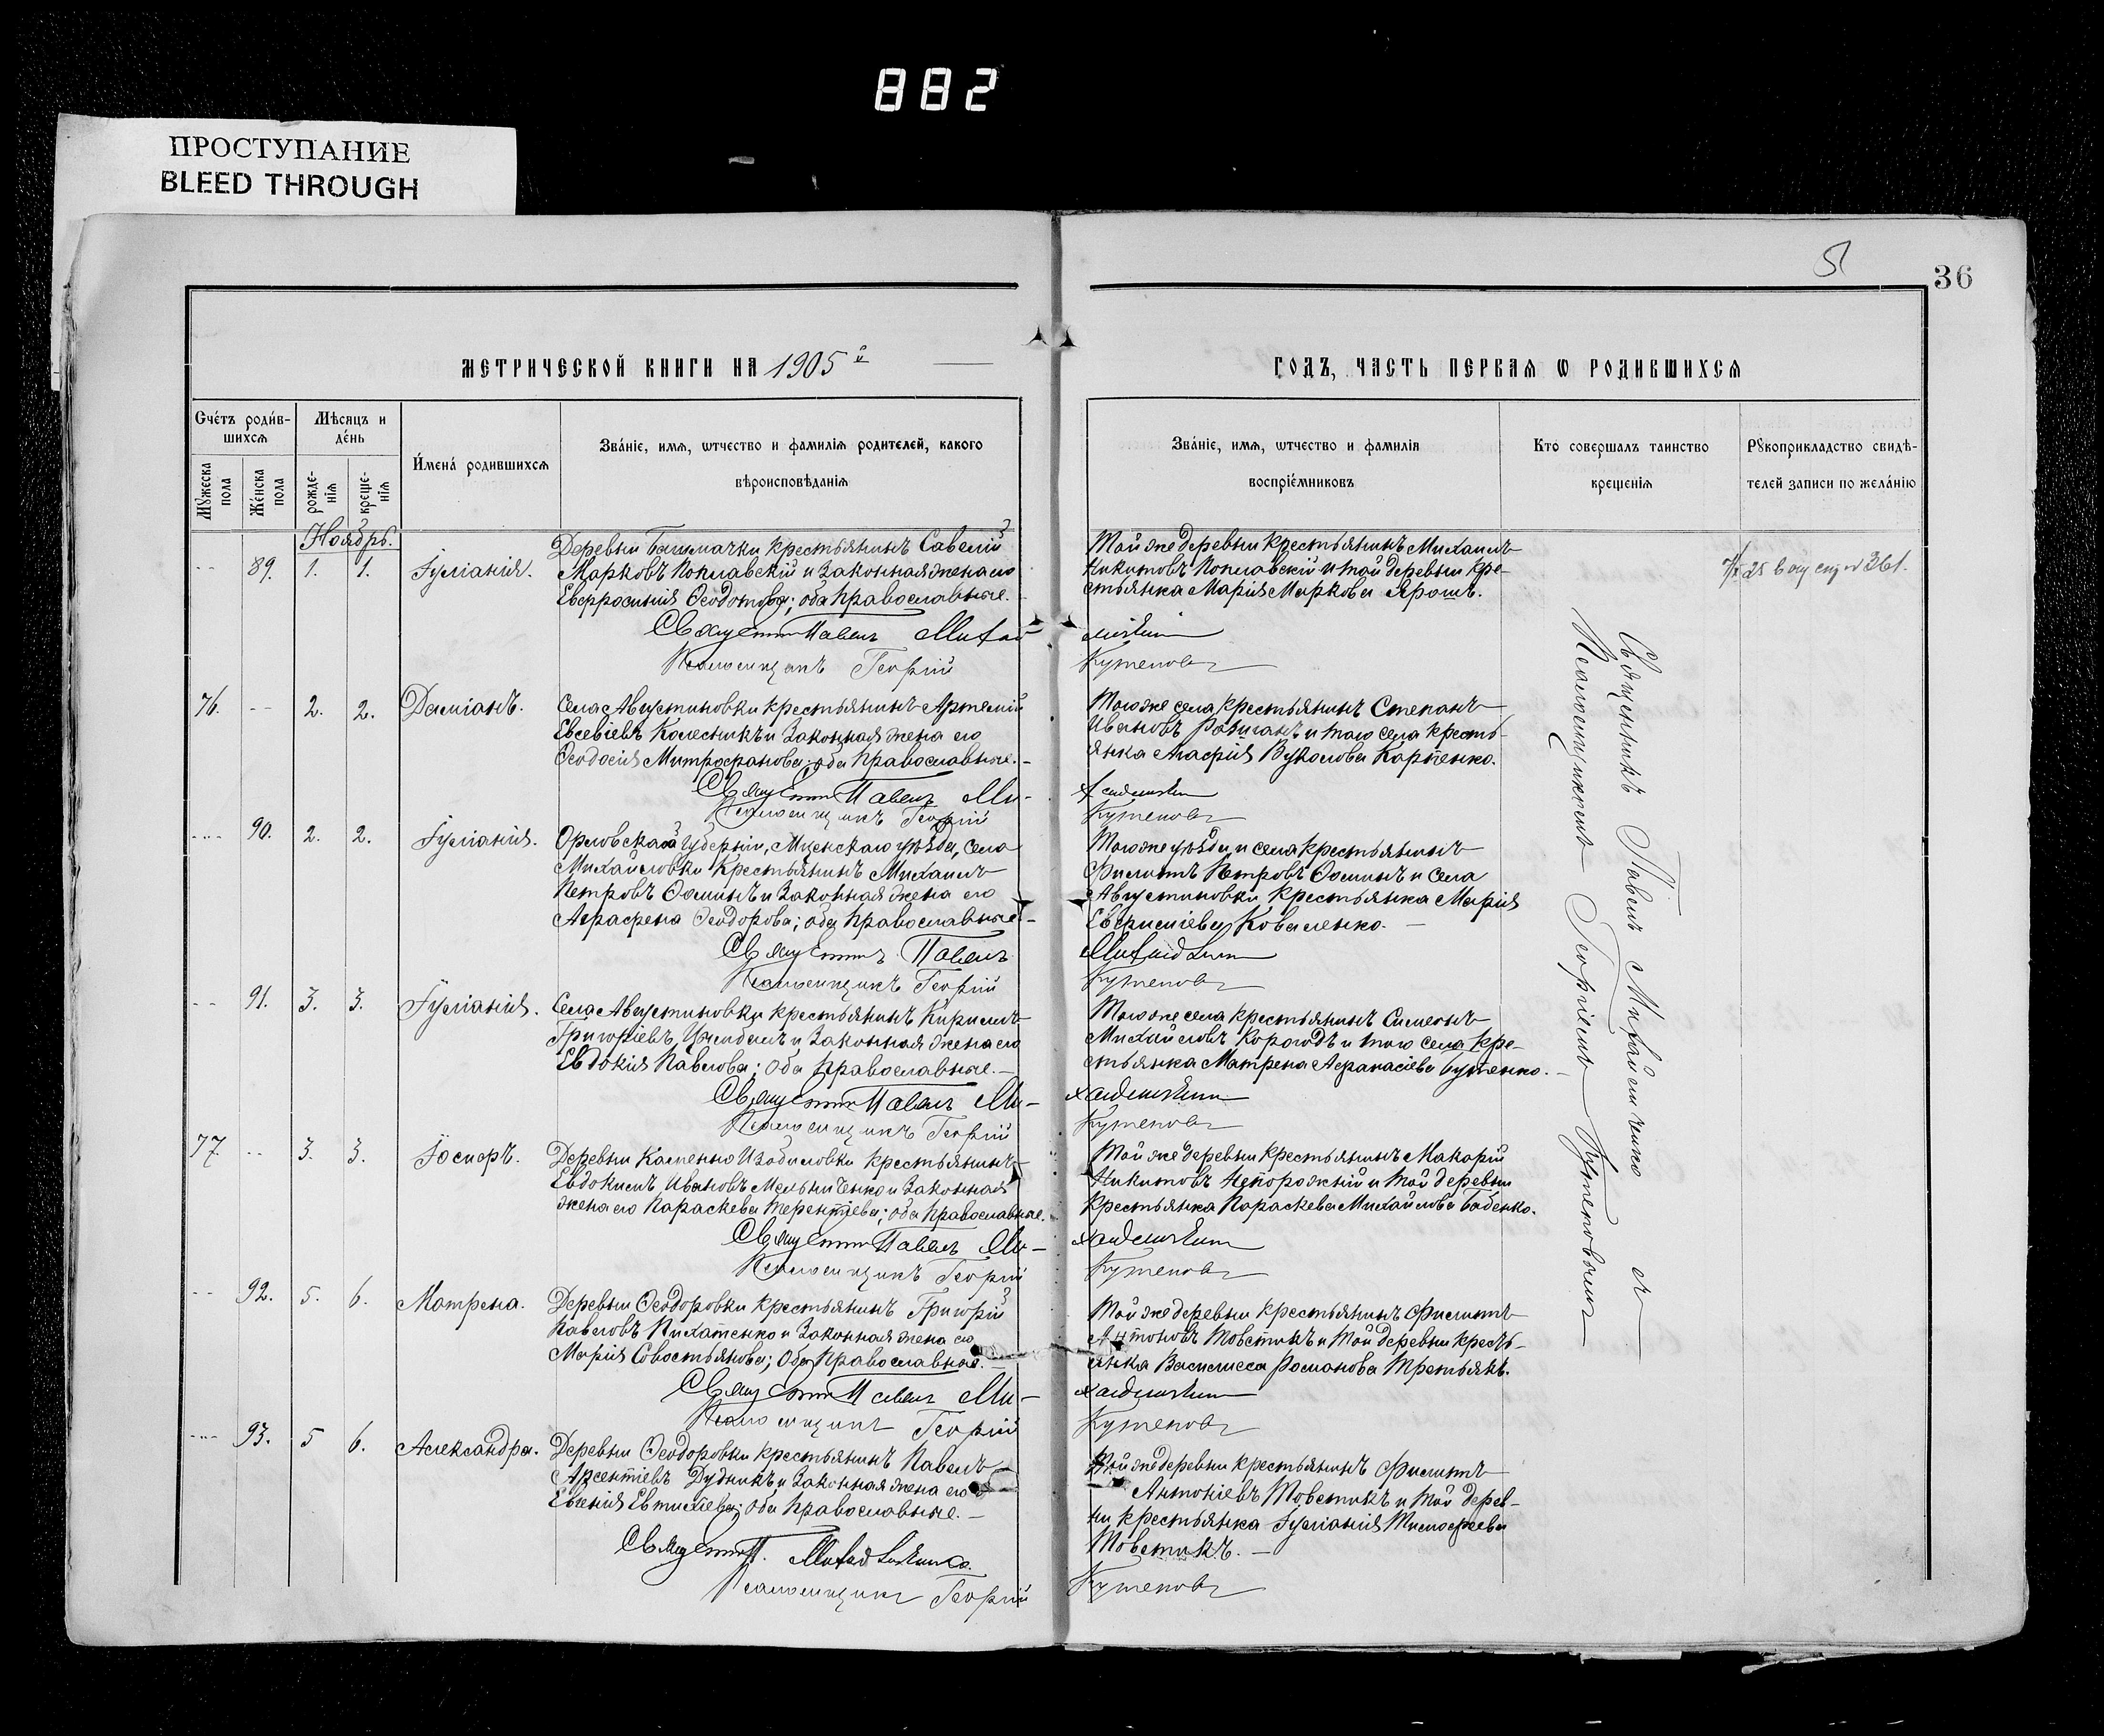 882
ПРОСТУПАНИЕ
BLEED THROUGH
36
МЕТРИЧЕСКОЙ КНИГИ НА 1905 й
ГОДЪ, ЧАСТЬ ПЕРВАЯ Ѡ РОДИВШИХСЯ
Счетъ родив-
шихся
Мѣсяцъ и
день
Мужеска
пола
Женска
пола
рожде-
нія
креще-
нія
Имена родившихся
Званіе, имя, ѡтчество и фамилія родителей, какого
вѣроисповѣданія
Званіе, имя, ѡтчество и фамилія
воспріемниковъ
Кто совершалъ таинство
крещенія
Рукоприкладство свидѣ-
телей записи по желанію
Ноябрь.
89. 1. 1. Іуліанія.
Деревни Башмачки крестьянинъ Савелій
Марковъ Поплавскій и законная жена его
Евфросинія Ѳеодотова; оба православные.
Той же деревни крестьянинъ Михаилъ
Никитовъ Поплавскій и той деревни кре-
стьянка Марія Маркова Ярошъ.
Священникъ Павелъ Михай-
Псаломщикъ Георгій
Кутеповъ
76. 2. 2. Даміанъ.
Села Августиновки крестьянинъ Артемій
Евсевіевъ Колесникъ и законная жена его
Ѳеодосія Митрофанова; оба православные.
Того же села крестьянинъ Степанъ
Ивановъ и того села кресть-
янка Марія Вуколова Карпенко.
Священникъ Павелъ Ми-
хайличенко
Псаломщикъ Георгій
Кутеповъ
90. 2. 2. Іуліанія.
Орловской губерніи, Мценскаго уѣзда, села
Михайловки крестьянинъ Михаилъ
Петровъ Ѳоминъ и законная жена его
Аграфена Ѳеодорова; оба православные.
Того же уѣзда и села крестьянинъ
Филиппъ Петровъ Ѳоминъ и села
Августиновки крестьянка Марія
Коваленко.
Священникъ Павелъ
Михайличенко
Псаломщикъ Георгій
Кутеповъ
91. 3. 3. Іуліанія.
Села Августиновки крестьянинъ Кириллъ
Григоріевъ и законная жена его
Евдокія Павлова; оба православные.
Того же села крестьянинъ Симеонъ
Михайловъ Корогодъ и того села кре-
стьянка Матрена Афанасіева Бутенко.
Священникъ Павелъ Ми-
хайличенко
Псаломщикъ Георгій
Кутеповъ
77. 3. 3. Іосифъ.
Деревни Каменно Изобиловки крестьянинъ
Евдокимъ Ивановъ Мельниченко и законная
жена его Параскева Терентіева; оба православные.
Той же деревни крестьянинъ Макарій
Никитовъ Непорожній и той деревни
крестьянка Параскева Михайлова Бабенко.
Священникъ Павелъ Ми-
хайличенко
Псаломщикъ Георгій
Кутеповъ
92. 5. 6. Матрена.
Деревни Ѳеодоровки крестьянинъ Григорій
Павловъ Пихатенко и законная жена его
Марія Совостьянова; оба православные.
Той же деревни крестьянинъ Филиппъ
Антоновъ Товстикъ и той деревни кресть-
янка Василисса Романова Третьякъ.
Священникъ Павелъ Ми-
хайличенко
Псаломщикъ Георгій
Кутеповъ
93. 5 6. Александра.
Деревни Ѳеодоровки крестьянинъ Павелъ
Арсентіевъ Дудникъ и законная жена его
Евгенія Евтихіева; оба православные.
Той же деревни крестьянинъ Филиппъ
Антоніевъ Товстикъ и той дерев-
ни крестьянка Іуліанія Тимофеева
Товстикъ.
Священникъ П. Михайличенко.
Псаломщикъ Георгій
Кутеповъ
Священникъ Павелъ Михайличенко съ
Псаломщикомъ Георгіемъ Кутеповымъ